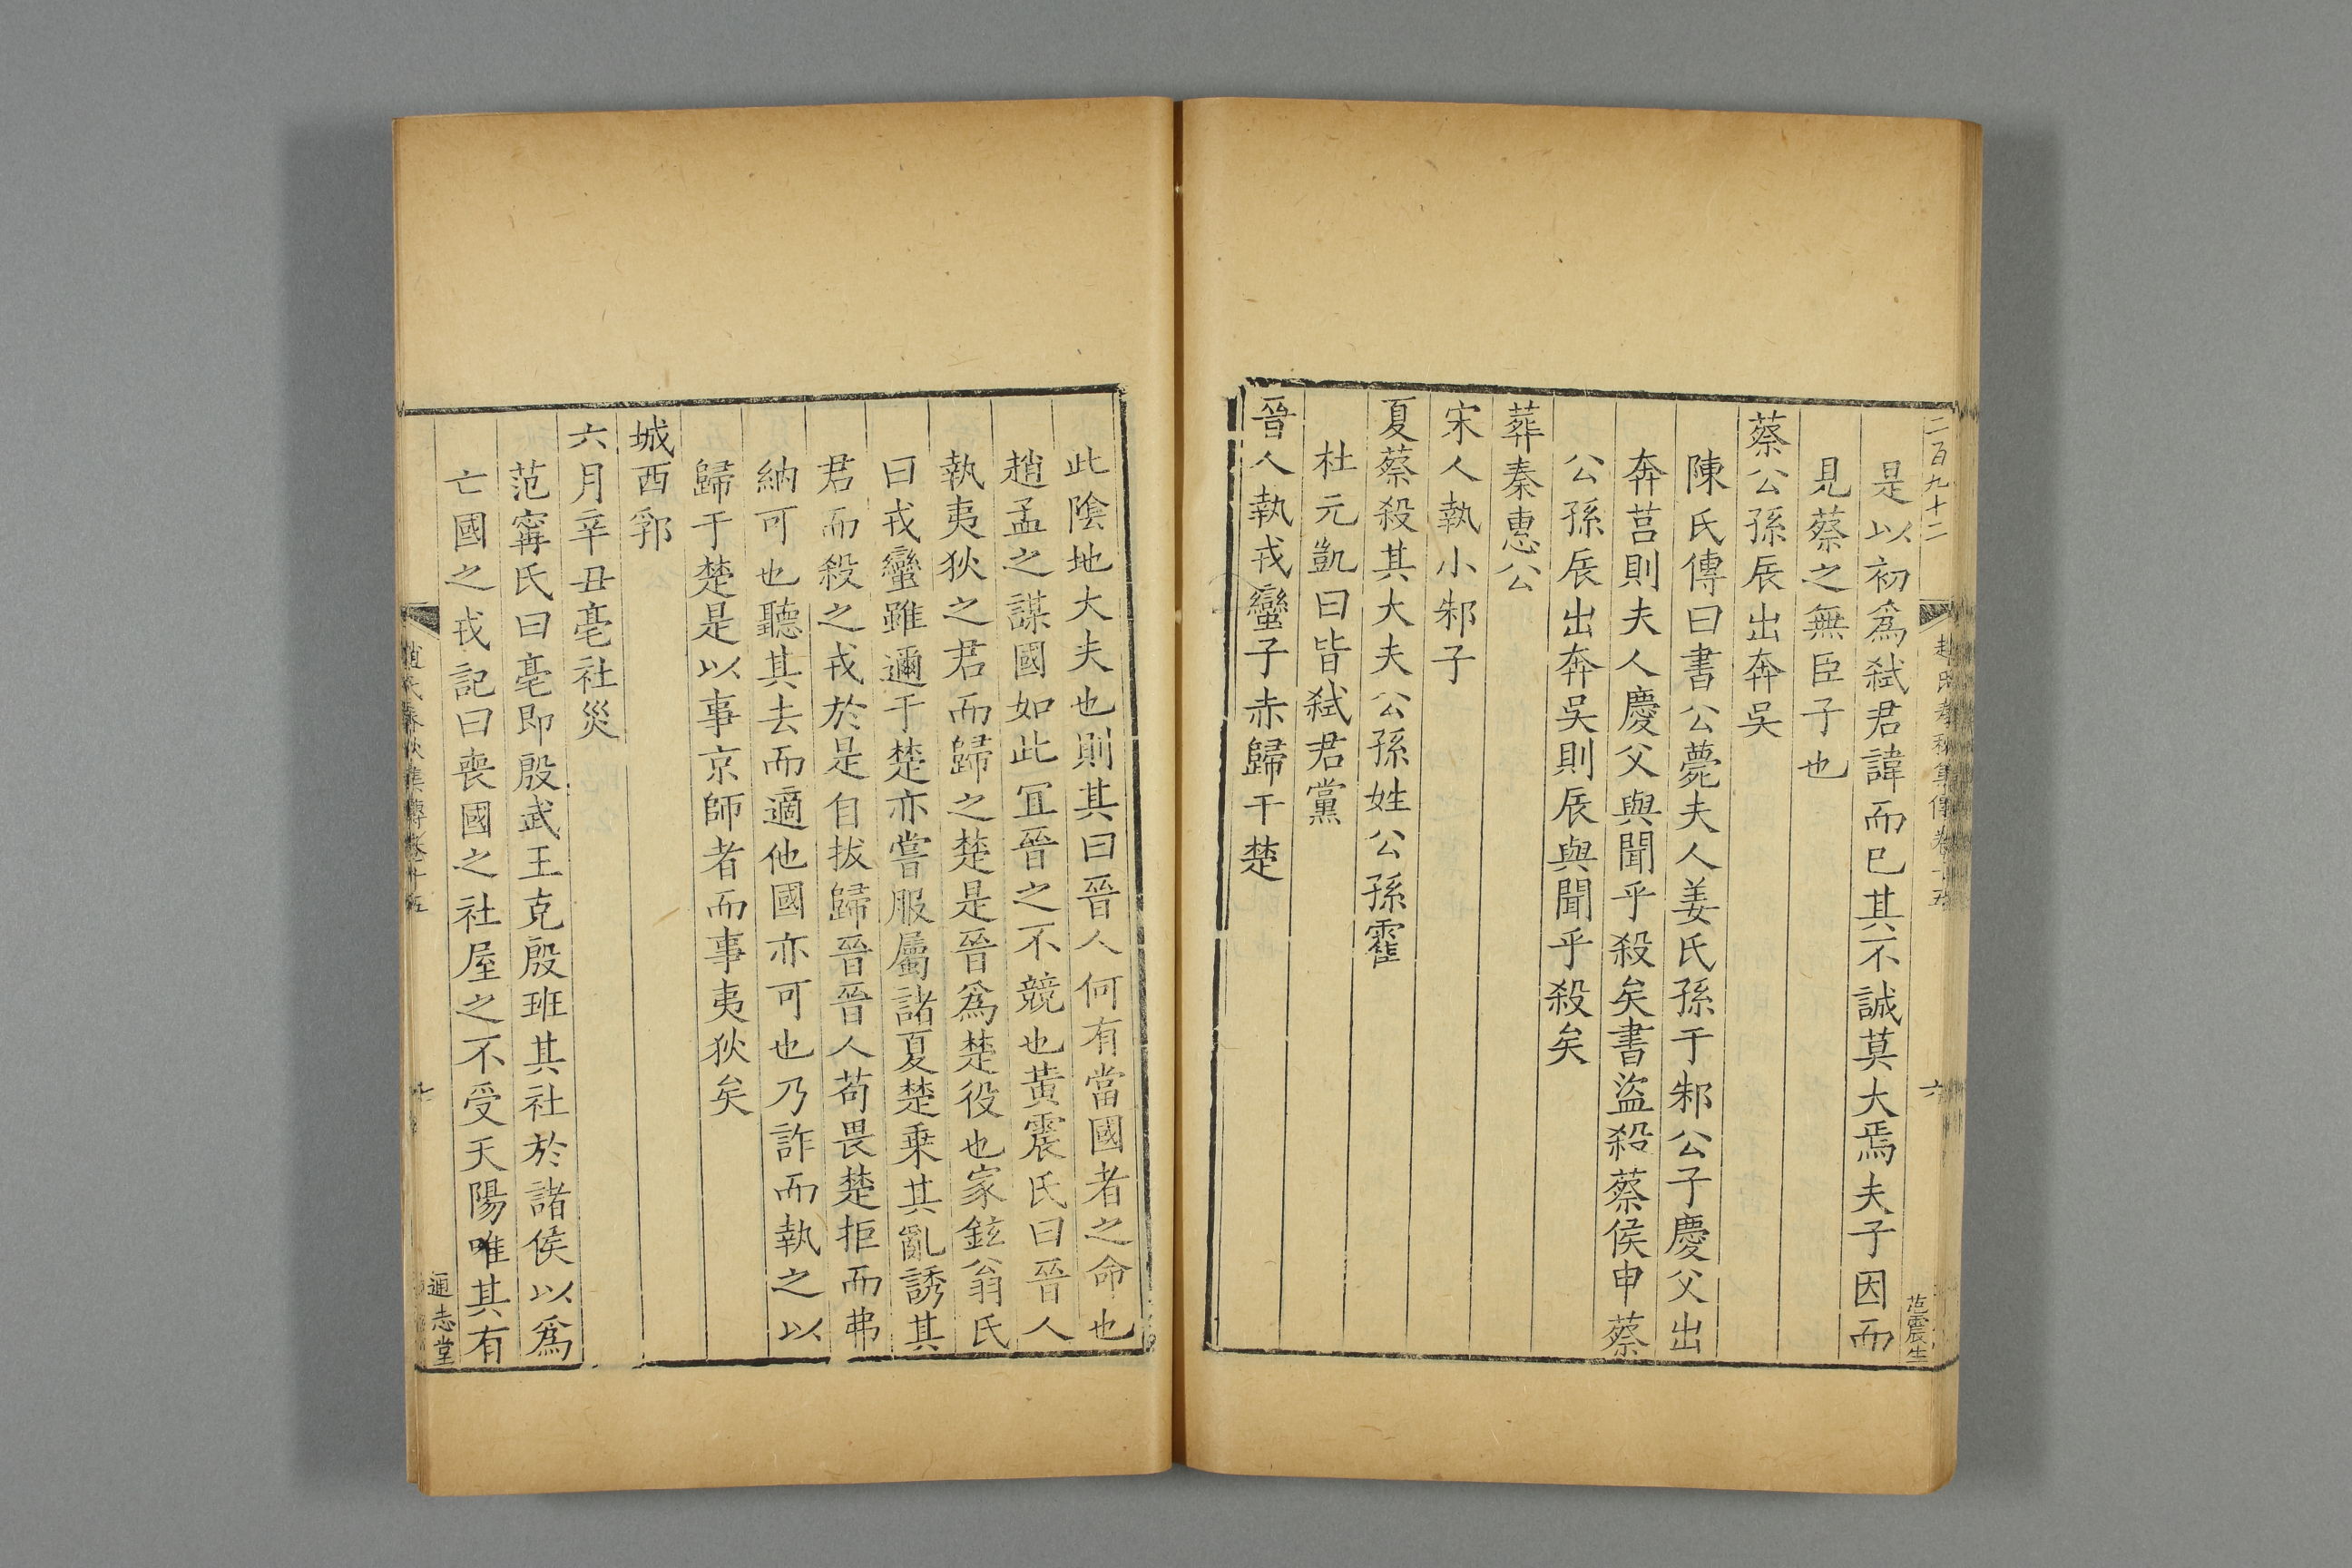 二百九十二
趙氏春秋集傳卷十五
六
范震生
是以初爲弑君諱而已其不誠莫大焉夫子因而
見蔡之無臣子也
蔡公孫辰出奔吳
陳氏傳曰書公薨夫人姜氏孫于邾公子慶父出
奔莒則夫人慶父與聞乎殺矣書盜殺蔡侯申蔡
公孫辰出奔吳則辰與聞乎殺矣
葬秦惠公
宋人執小邾子
夏蔡殺其大夫公孫姓公孫霍
杜元凱曰皆弑君黨
晉人執戎蠻子赤歸于楚
此陰地大夫也則其曰晉人何有當國者之命也
趙孟之謀國如此宜晉之不競也黃震氏曰晉人
執夷狄之君而歸之楚是晉爲楚役也家鉉翁氏
曰戎蠻雖邇于楚亦嘗服屬諸夏楚乗其亂誘其
君而殺之戎於是自拔歸晉晉人苟畏楚拒而弗
納可也聽其去而適他國亦可也乃詐而執之以
歸于楚是以事京師者而事夷狄矣
城西郛
六月辛丑亳社災
范甯氏曰亳即殷武王克殷班其社於諸侯以爲
亡國之戎記曰喪國之社屋之不受天陽唯其有
趙氏春秋集傳卷十五
七
通志堂